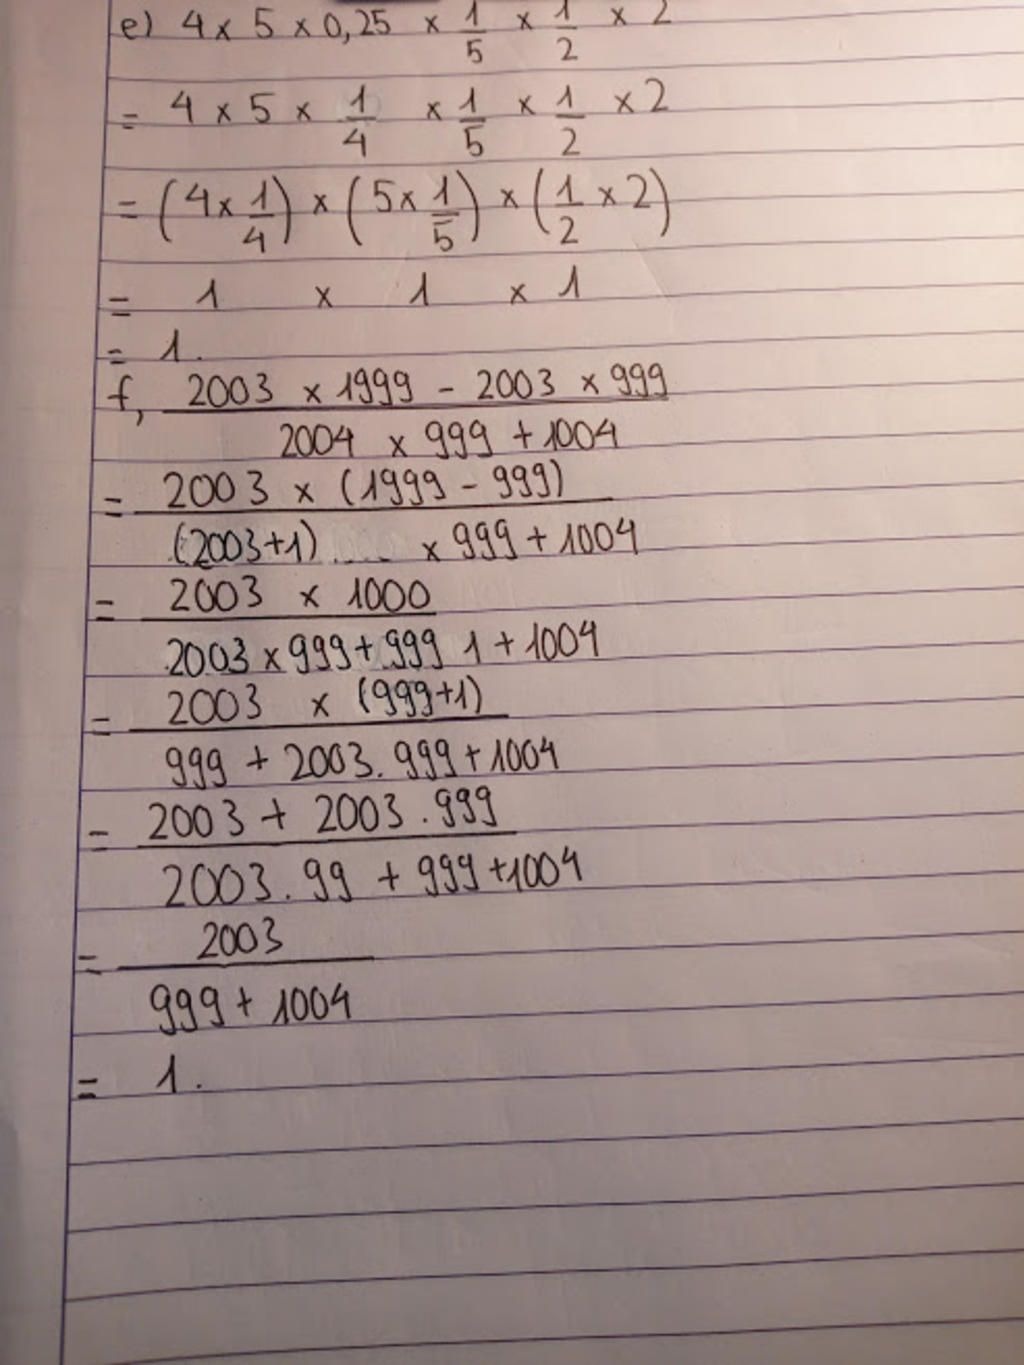 e) 4 x 5 x 0,25 x 1/5 x 1/2 x 2
= 4 x 5 x 1/4 x 1/5 x 1/2 x 2
= (4 x 1/4) x (5 x 1/5) x (1/2 x 2)
= 1 x 1 x 1
= 1.
f, 2003 x 1999 - 2003 x 999
2004 x 999 + 1004
= 2003 x (1999 - 999)
(2003+1) .... x 999 + 1004
= 2003 x 1000
2003 x 999 + 999 1 + 1004
= 2003 x (999+1)
999 + 2003. 999 + 1004
= 2003 + 2003 . 999
2003 . 99 + 999 + 1004
= 2003
999 + 1004
= 1.